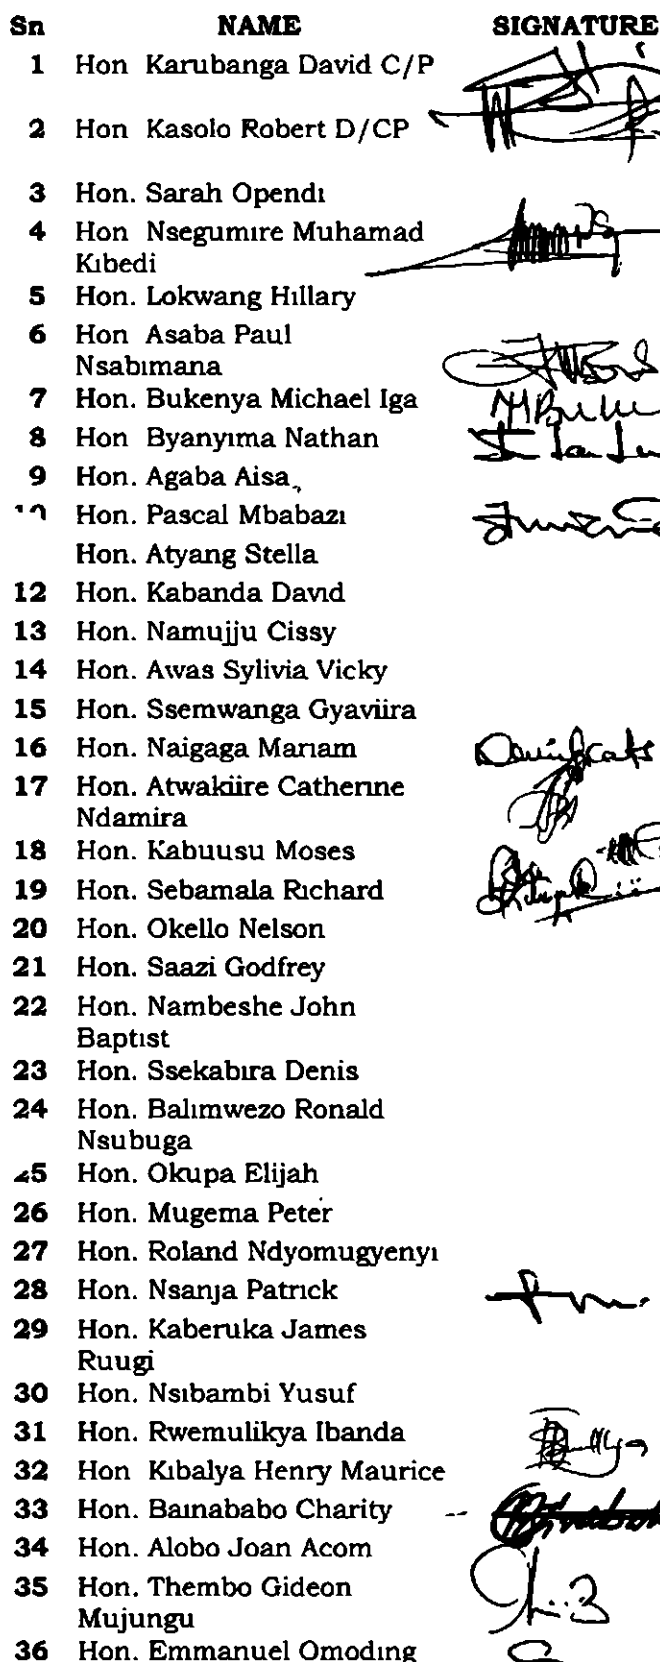 Sn NAME SIGNATURE
1 Hon Karubanga David C/P
2 Hon Kasolo Robert D/CP
3 Hon. Sarah Opendı
4 Hon Nsegumıre Muhamad
Kıbedi
5 Hon. Lokwang Hıllary
6 Hon Asaba Paul
Nsabımana
7 Hon. Bukenya Michael Iga
8 Hon Byanyıma Nathan
9 Hon. Agaba Aisa
Hon. Pascal Mbabazı
Hon. Atyang Stella
12 Hon. Kabanda David
13 Hon. Namujju Cissy
14 Hon. Awas Sylivia Vicky
15 Hon. Ssemwanga Gyaviira
16 Hon. Naigaga Marıam
17 Hon. Atwakiire Catherıne
Ndamira
18 Hon. Kabuusu Moses
19 Hon. Sebamala Rıchard
20 Hon. Okello Nelson
21 Hon. Saazi Godfrey
22 Hon. Nambeshe John
Baptıst
23 Hon. Ssekabıra Denis
24 Hon. Balımwezo Ronald
Nsubuga
25 Hon. Okupa Elijah
26 Hon. Mugema Peter
27 Hon. Roland Ndyomugyenyı
28 Hon. Nsanja Patrıck
29 Hon. Kaberuka James
Ruugi
30 Hon. Nsıbambi Yusuf
31 Hon. Rwemulikya Ibanda
32 Hon Kıbalya Henry Maurice
33 Hon. Baınababo Charity
34 Hon. Alobo Joan Acom
35 Hon. Thembo Gideon
Mujungu
36 Hon. Emmanuel Omodıng